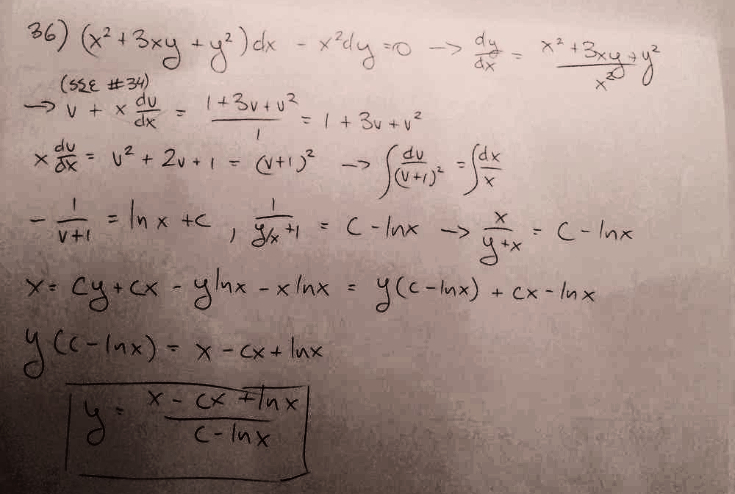 36) (x² + 3xy + y²)dx - x²dy = 0 → dy/dx = (x² + 3xy + y²)/x²
(SEE #34)
→ v + x dv/dx = (1 + 3v + v²)/1 = 1 + 3v + v²
x dv/dx = v² + 2v + 1 = (v+1)² → ∫ dv/(v+1)² = ∫ dx/x
- 1/(v+1) = ln x + c , 1/(y/x + 1) = C - lnx → x/(y+x) = C - lnx
x = Cy + cx - ylnx - xlnx = y(c - lnx) + cx - lnx
y(c - lnx) = x - cx + lnx
y = (x - cx + lnx)/(c - lnx)